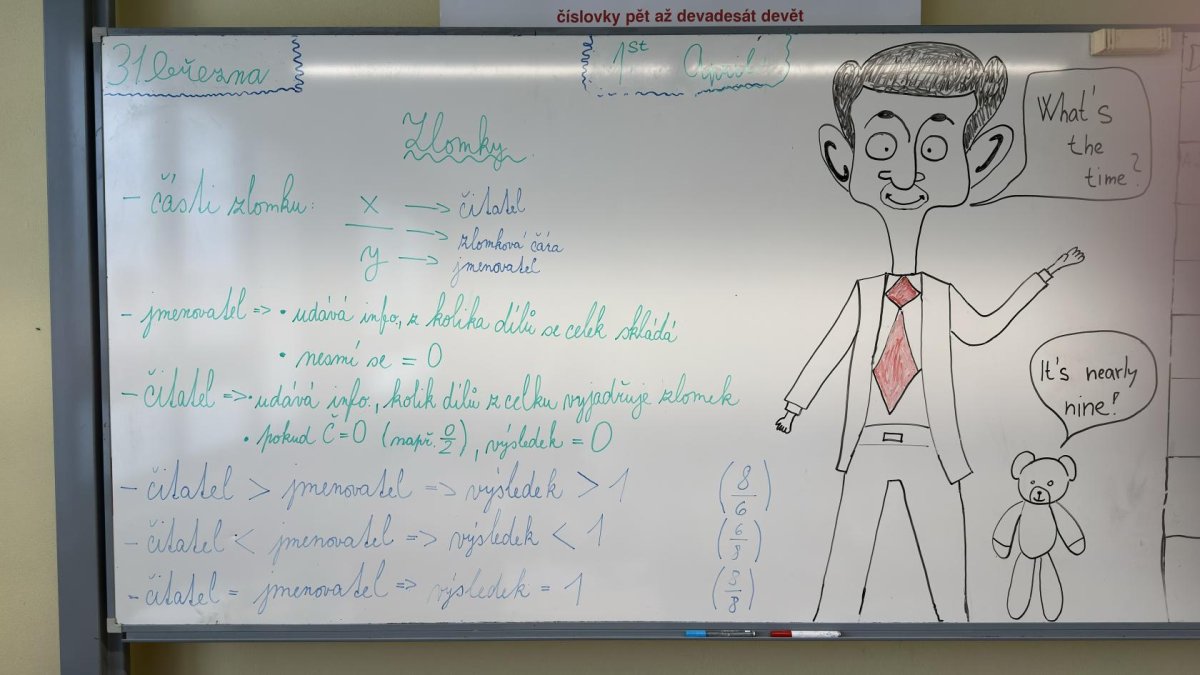 číslovky pět až devadesát devět
31 března
1st April
Zlomky
- části zlomku: x → čitatel
→ zlomková čára
y → jmenovatel
- jmenovatel => • udává info., z kolika dílů se celek skládá
• nesmí se = 0
- čitatel => • udává info., kolik dílů z celku vyjadřuje zlomek
• pokud č = 0 (např. 0/2), výsledek = 0
- čitatel > jmenovatel => výsledek > 1 (8/6)
- čitatel < jmenovatel => výsledek < 1
- čitatel = jmenovatel => výsledek = 1
What's
the
time?
It's nearly
nine!